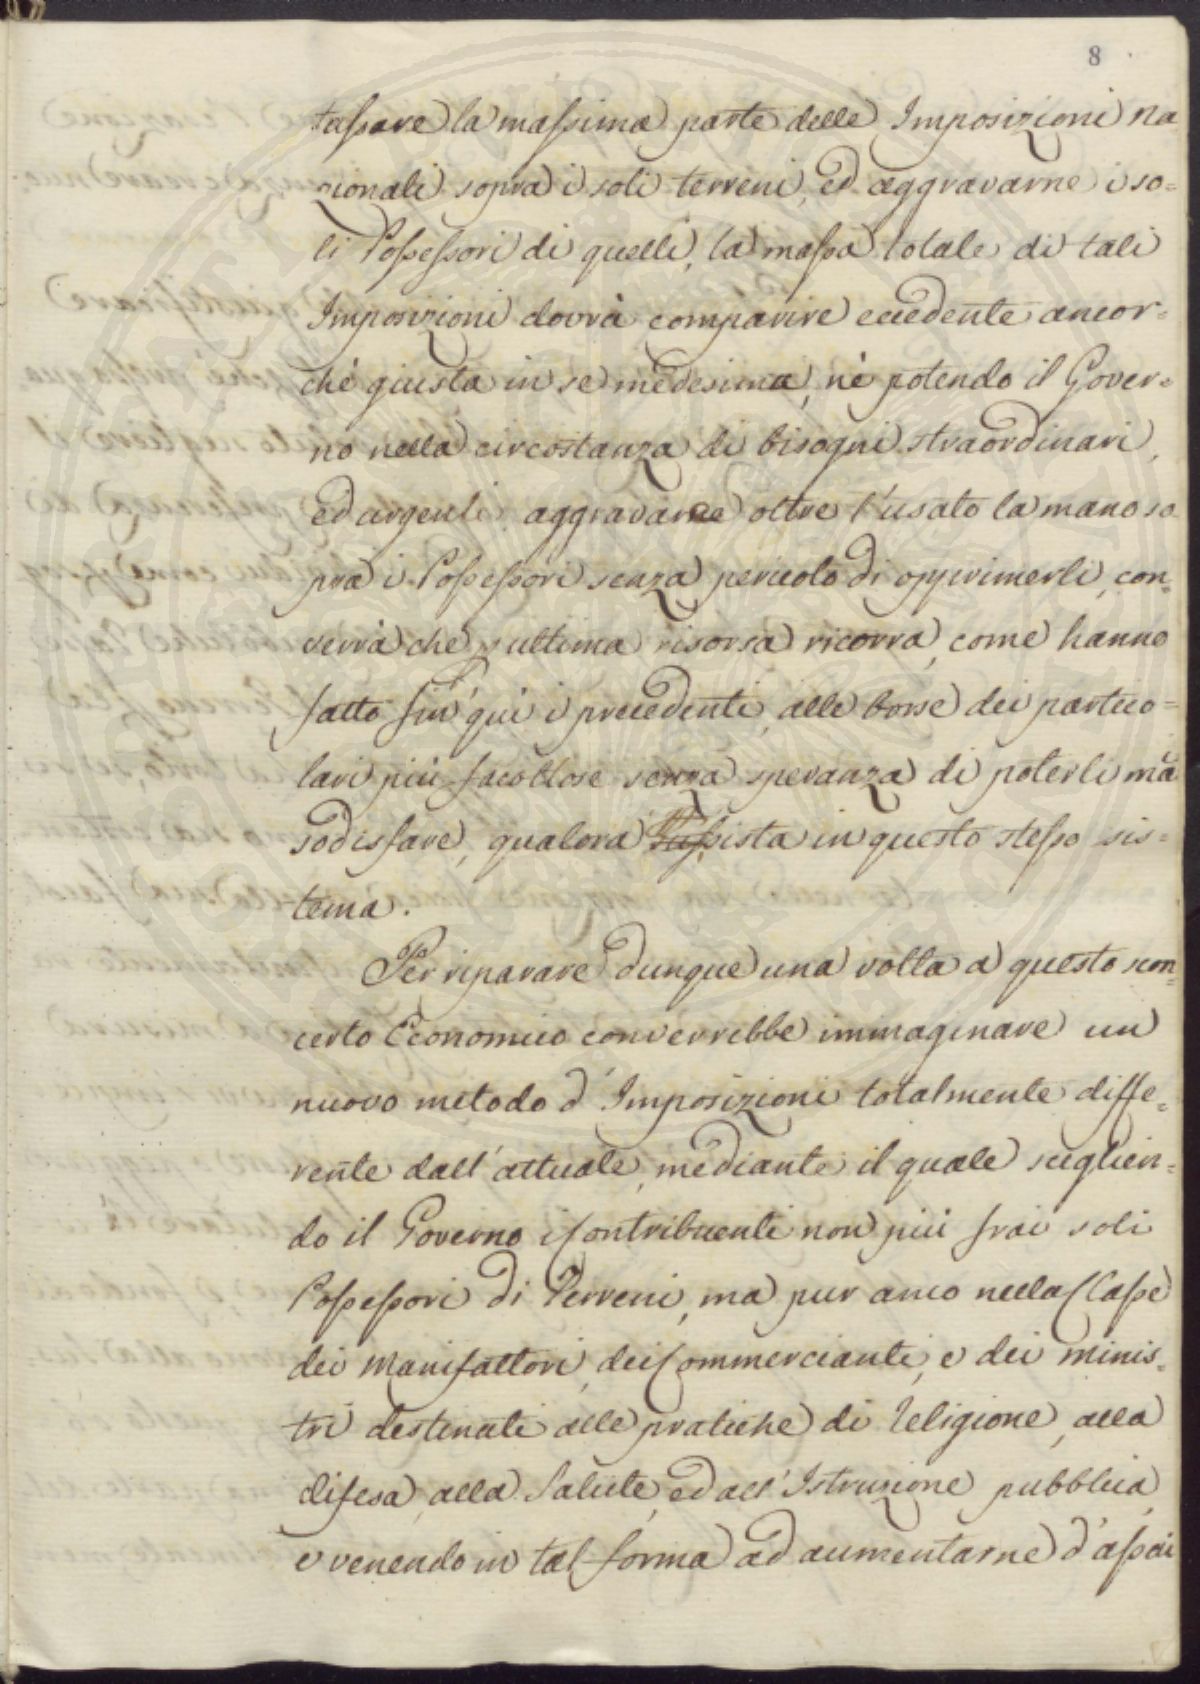 8
tassare la massima parte delle Imposizioni Na
zionali sopra i soli terreni, ed aggravarne i so=
li Possessori di quelli, la massa totale di tali
Imposizioni dovrà comparire eccedente ancor=
chè giusta in se medesima, nè potendo il Gover=
no nella circostanza di bisogni straordinari,
ed urgenti, aggravarne oltre l'usato la mano so
pra i Possessori senza pericolo di opprimerli, con=
verrà che p ultima risorsa ricorra, come hanno
fatto fin' qui i precedenti, alle borse dei partico=
lari più facoltose senza speranza di poterli mai
sodisfare, qualora sista in questo stesso sis=
tema.
Per riparare dunque una volta a questo scon=
certo Economico converrebbe immaginare un
nuovo metodo d'Imposizioni totalmente diffe=
rente dall'attuale, mediante il quale sceglien=
do il Governo i Contribuenti non più frai soli
Possessori di Terreni, ma pur anco nella Classe
dei Manifattori, dei Commercianti, e dei minis=
tri destinati alle pratiche di Religione, alla
difesa, alla Salute, ed all'Istruzione pubblica,
e venendo in tal forma ad aumentarne d'assai